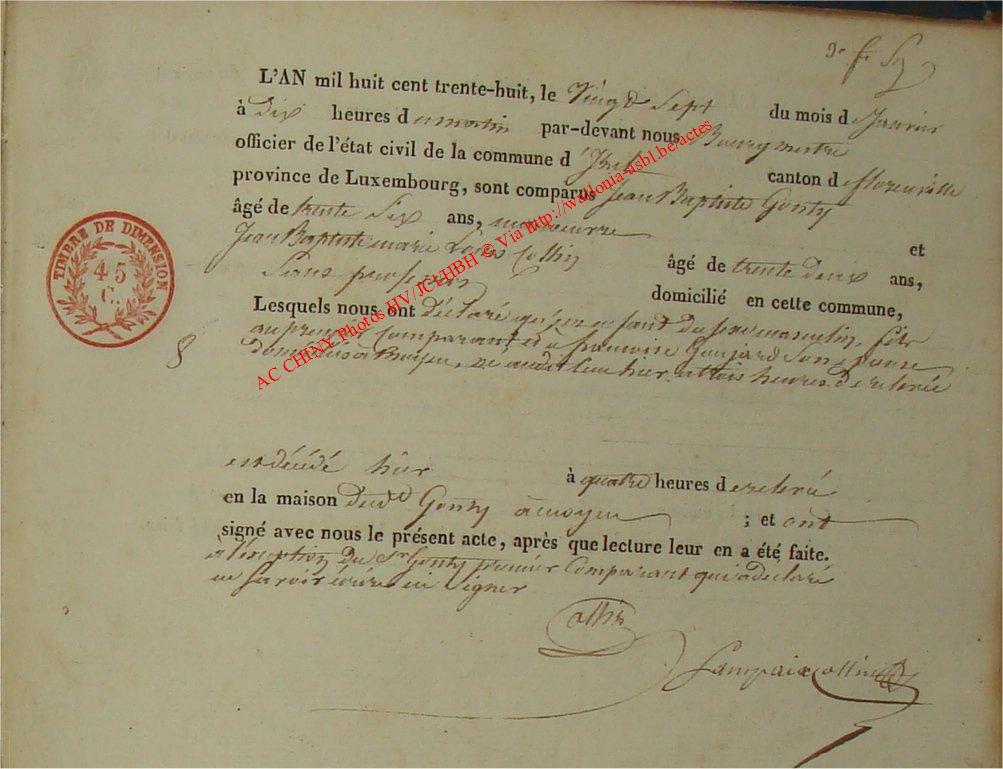 L'AN mil huit cent trente-huit, le vingt Sept du mois d e Janvier
à Dix heures d u matin par-devant nous Bourgmestre
officier de l'état civil de la commune d' canton d e florenville
province de Luxembourg, sont comparus Jean Baptiste Gonty
âgé de trente Six ans, manoeuvre et
Jean Baptiste marie Louis Collin âgé de trente deux ans,
Sans profession domicilié en cette commune,
Lesquels nous ont déclaré qu'un enfant du sexe masculin, fils
au premier Comparant et a françoise Goujard Son épouse
domiciliés à moyen, né audit lieu hier, à trois heures de relevée
8
est décédé hier à quatre heures d e relevée
en la maison dud. Gonty à moyen ; et ont
signé avec nous le présent acte, après que lecture leur en a été faite.
à l'exception du Sr Gonty premier Comparant qui a déclaré
ne Savoir écrire ni Signer
Collin
Lampaix collin
TIMBRE DE DIMENSION
45
C.
AC CHINY Photos HV/JCL/HBH © Via http://wallonia-asbl.be/actes